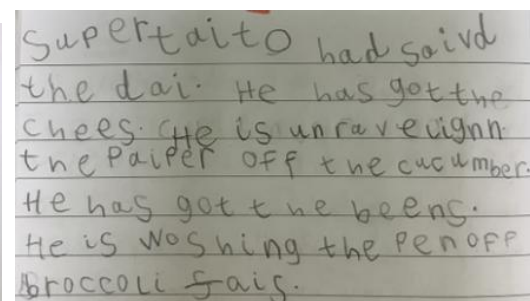 Supertaito had saivd
the dai. He has got the
chees. He is unravelignn.
the Paiper off the cucumber.
He has got the beens.
He is woshing the pen off
broccoli fais.